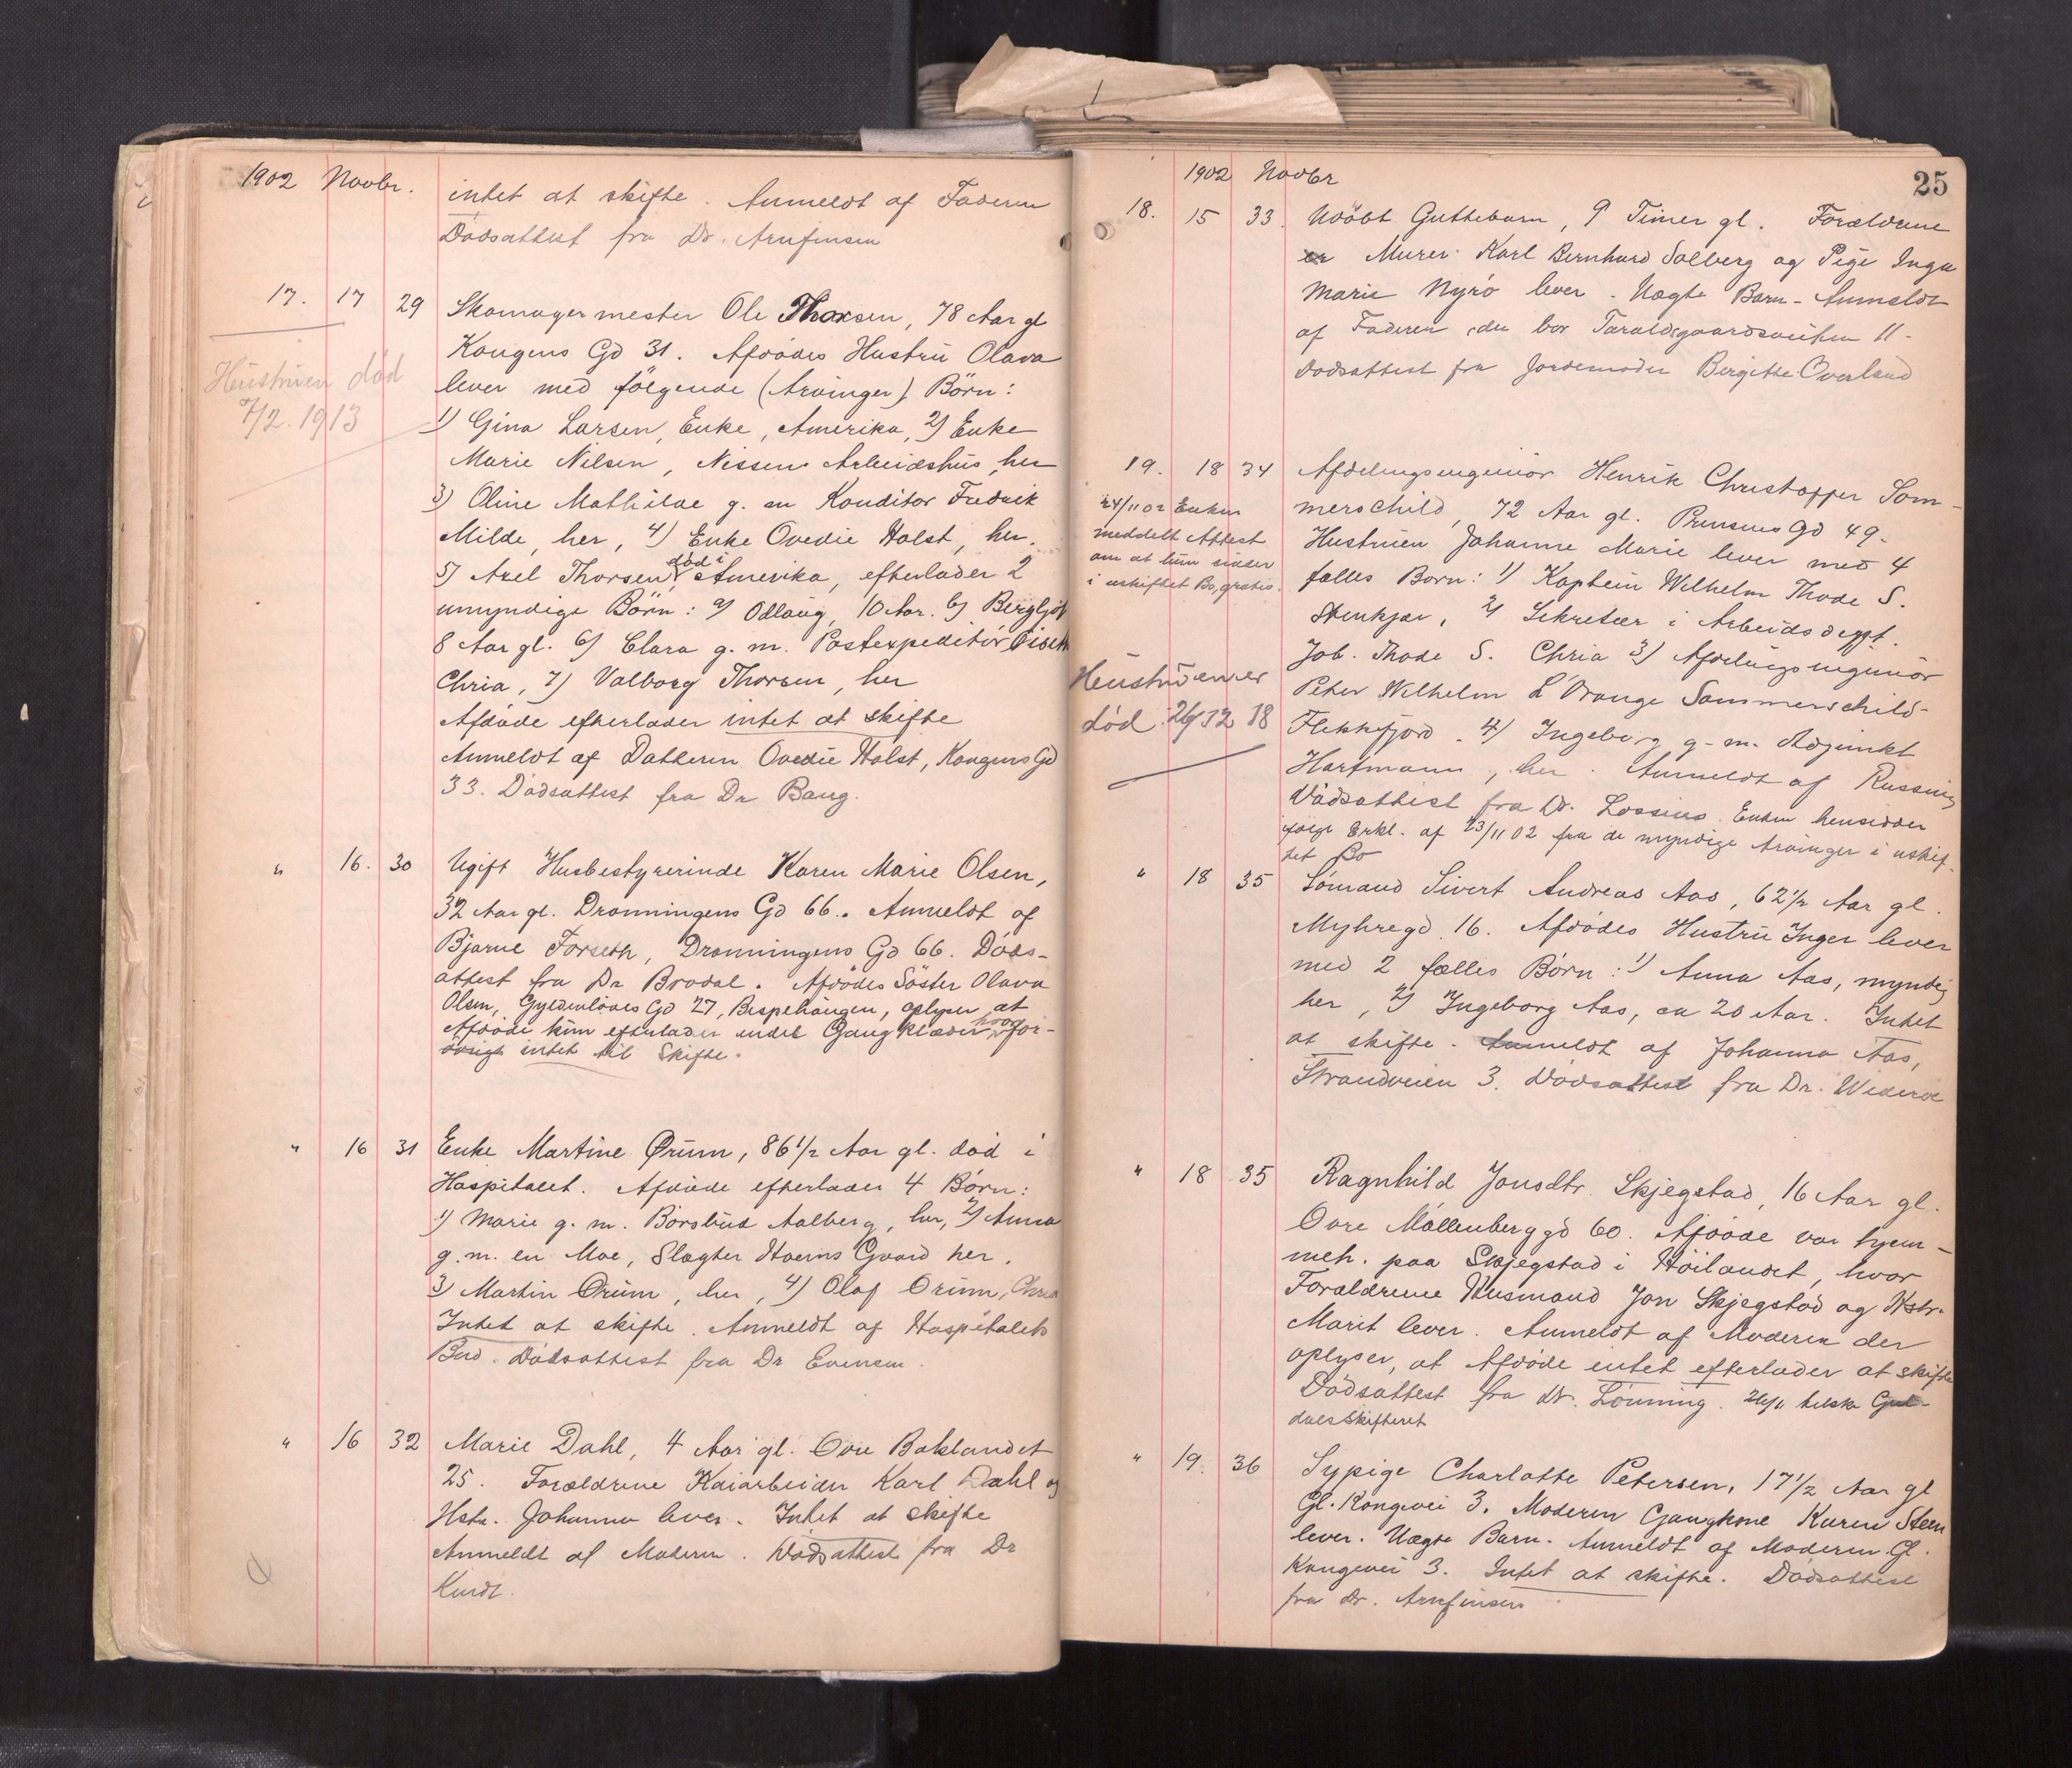 1902 Novbr.
intet at skifte. Anmeldt af Faderen
Dödsattest fra Dr. Arnfinsen
17. 17 29 Skomagermester Ole Thorsen, 78 Aar gl
Kongens Gd 31. Afdödes Hustru Olava
lever med fölgende (Arvinger) Börn:
1) Gina Larsen, Enke, Amerika, 2) Enke
Marie Nilsen, Nissens Arbeidshus, her
3) Oline Mathilde g. m Konditor Fredrik
Milde, her, 4) Enke Ovedie Holst, her.
5) Axel Thorsen, död i Amerika, efterlader 2
umyndige Börn: a) Odlaug, 10 Aar. b) Bergljot
8 Aar gl. 6) Clara g. m. Postexpeditör
Chria, 7) Valborg Thorsen, her
Afdöde efterlader intet at skifte
Anmeldt af Datteren Ovedie Holst, Kongens Gd
33. Dödsattest fra Dr Bang.
Hustruen död
7/2. 1913
" 16. 30 Ugift Husbestyrerinde Karen Marie Olsen,
32 Aar gl. Dronningens Gd 66. Anmeldt af
Bjarne Forseth, Dronningens Gd 66. Döds-
attest fra Dr Brodal. Afdödes Söster Olava
Olsen, Gyldenlöves Gd 27, Bispehaugen, oplyser, at
Afdöde kun efterlader endel Gangklæder, hvorfor-
övrigt intet til Skifte.
" 16 31 Enke Martine Ørum, 86 1/2 Aar gl. död i
Hospitalet. Afdöde efterlader 4 Börn:
1) Marie g. m. Börsbud Aalberg, her, 2) Anna
g. m. en Moe, Slagter Hoems Gaard her.
3) Martin Ørum, her, 4) Olaf Ørum, Chria
Intet at skifte. Anmeldt af Hospitalets
Bud. Dödsattest fra Dr Evensen.
" 16 32 Marie Dahl, 4 Aar gl. Övre Baklandet
25. Forældrene Kaiarbeider Karl Dahl og
Hstr. Johanna lever. Intet at skifte
Anmeldt af Moderen. Dödsattest fra Dr
Kindt.
25
1902 Novbr
18. 15 33. Udöbt Guttebarn, 9 Timer gl. Forældrene
er Murer Karl Bernhard Solberg og Pige Inga
Marie Nyrö lever. Uægte Barn. Anmeldt
af Faderen, der bor Taraldsgaardsveiten 11.
Dödsattest fra Jordemoder Bergitte Overland
19. 18 34 Afdelingsingeniör Henrik Christoffer Som-
merschild, 72 Aar gl. Prinsens Gd 49.
Hustruen Johanne Marie lever med 4
fælles Börn: 1) Kaptein Wilhelm Thode S.
Stenkjær, 2) Sekretær i Arbeidsdept.
Job. Thode S. Chria 3) Afdelingsingeniör
Peter Wilhelm L'Orange Sommerschild
Flekkefjord. 4) Ingeborg g. m. Adjunkt
Hartmann, her. Anmeldt af Russing
Dödsattest fra Dr. Lossius. Enken hensidder
ifölge Erkl. af 23/11 02 fra de myndige Arvinger i uskif-
tet Bo
24/11 02 Enken
meddelt Attest
om at hun sidder
i uskiftet Bo, gratis.
Hustruen er
död 26/12 18
" 18 35 Sömand Sivert Andreas Aas, 62 1/2 Aar gl.
Myhregd. 16. Afdödes Hustru Inger lever
med 2 fælles Börn: 1) Anna Aas, myndig
her, 2) Ingeborg Aas, ca 20 Aar. Intet
at skifte. Anmeldt af Johanna Aas,
Strandveien 3. Dödsattest fra Dr. Wideröe
" 18 35 Ragnhild Jonsdtr. Skjegstad, 16 Aar gl.
Övre Möllenberg gd 60. Afdöde var hjem-
meh. paa Skjegstad i Höilandet, hvor
Forældrene Husmand Jon Skjegstad og Hstr.
Marit lever. Anmeldt af Moderen der
oplyser, at Afdöde intet efterlader at skifte
Dödsattest fra Dr. Lönning. 26/11 tilskr. Gul-
dals Skifteret
" 19. 36 Sypige Charlotte Petersen, 17 1/2 Aar gl
Gl. Kongevei 3. Moderen Gangkone Karen Steen
lever. Uægte Barn. Anmeldt af Moderen Gl.
Kongevei 3. Intet at skifte. Dödsattest
fra Dr. Arnfinsen